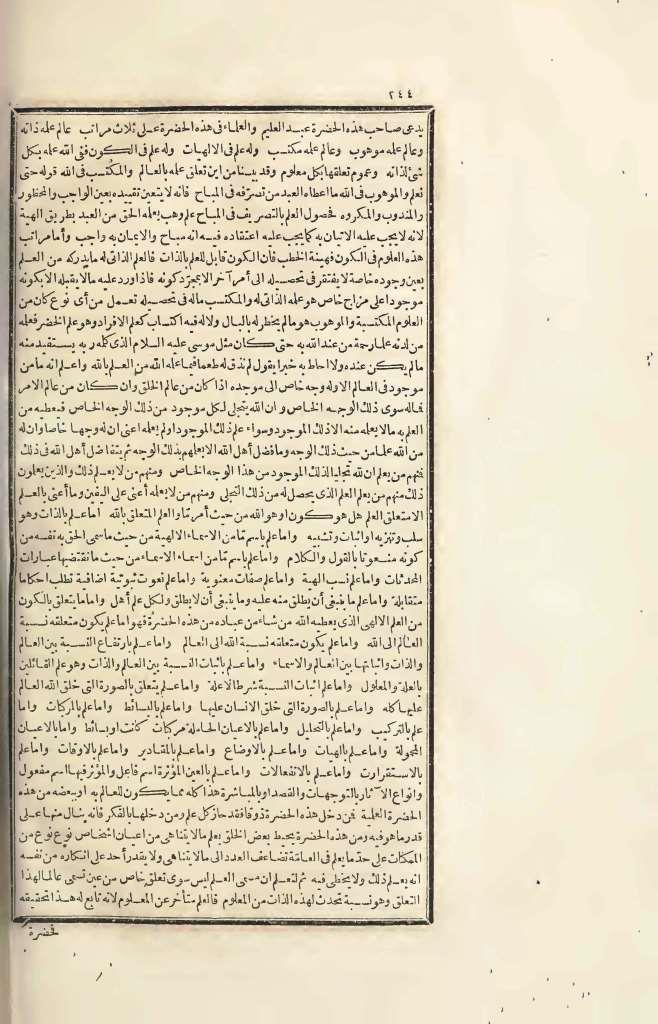 ٢٤٤
يدعى صاحب هذه الحضرة عبد العليم والعلماء فى هذه الحضرة على ثلاث مراتب عالم علمه ذاته
وعالم علمه موهوب وعالم علمه مكتسب وله علم فى الالهيات وله علم فى الكون فنى الله علمه بكل
شئ لذاته وعموم تعلقها بكل معلوم وقد بينا من اين تعلق علمه بالعالم والمكتسب فى الله قوله حتى
نعلم والموهوب فى الله ما اعطاه العبد من تصرّفه فى المباح فانه لا يتعين تقييده بعين الواجب والمحظور
والمندوب والمكروه فحصول العلم بالتصريف فى المباح علم وهب يعلمه الحق من العبد بطريق الهبة
لانه لا يجب عليه الاتيان به كما يجب عليه اعتقاده فيه انه مباح والايمان به واجب وأما مراتب
هذه العلوم فى الكون فهينة الخطب فان الكون قابل للعلم بالذات فالعلم الذاتى له ما يدركه من العلم
بعين وجوده خاصة لا يفتقر فى تحصيله الى أمر آخر الا بمجرّد كونه فاذا ورد عليه ما لا يقبله الا بكونه
موجودا على مزاج خاص هو علمه الذاتى له والمكتسب ماله فى تحصيله تعمل من أى نوع كان من
العلوم المكتسبة والموهوب هو ما لم يخطر له بالبال ولا له فيه اكتساب كعلم الافراد وهو علم الخضر فعلمه
من لدنه علما رحمة من عند الله به حتى كان مثل موسى عليه السلام الذى كلمه ربه يستفيد منه
ما لم يكن عنده ولا احاط به خبرا يقول لم نذق له طعما فيما علمه الله من العلم بالله واعلم انه ما من
موجود فى العالم الا وله وجه خاص الى موجده اذا كان من عالم الخلق وان كان من عالم الامر
فماله سوى ذلك الوجه الخاص وان الله يتجلى لكل موجود من ذلك الوجه الخاص فيعطيه من
العلم به ما لا يعلمه منه الا ذلك الموجود وسواء علم ذلك الموجود او لم يعلمه اعنى ان له وجها خاصا وان له
من الله علما من حيث ذلك الوجه وما فضل أهل الله الا بعلمهم بذلك الوجه ثم يتفاضل أهل الله فى ذلك
فنهم من يعلم ان لله تجليا لذلك الموجود من هذا الوجه الخاص ومنهم من لا يعلم ذلك والذين يعلمون
ذلك منهم من يعلم العلم الذى يحصل له من ذلك التجلى ومنهم من لا يعلمه أعنى على اليقين وما أعنى بالعلم
الا متعلق العلم هل هو كون او هو الله من حيث أمر ما والعلم المتعلق بالله اما علم بالذات وهو
سلب وتنزيه او اثبات وتشبيه واما علم باسم ما من الاسماء الالهية من حيث ما سمى الحق به نفسه من
كونه منعوتا بالقول والكلام واما علم باسم ما من اسماء الاسماء من حيث ما تقتضيها عبارات
المحدثات واما علم نسب الهية واما علم صفات معنوية واما علم نعوت ثبوتية اضافية تطلب احكاما
متقابلة واما علم ما ينبغى أن يطلق منه عليه وما ينبغى أن لا يطلق ولكل علم أهل واما ما يتعلق بالكون
من العلم الالهى الذى يعطيه الله من شاء من عباده من هذه الحضرة فهو اما علم يكون متعلقه نسبة
العالم الى الله واما علم يكون متعلقه نسبة الله الى العالم واما علم بارتفاع النسبة بين العالم
والذات واثباتها بين العالم والاسماء واما علم باثبات النسبة بين العالم والذات وهو علم القائلين
بالعلة والمعلول واما علم اثبات النسبة شرطا لا علة واما علم يتعلق بالصورة التى خلق الله العالم
عليها كله واما علم بالصورة التى خلق الانسان عليها واما علم بالبسائط واما علم بالمركبات واما
علم بالتركيب واما علم بالتحليل واما علم بالاعيان الحاملة مركبات كانت او بسائط واما بالاعيان
المحمولة واما علم بالهيات واما علم بالاوضاع واما علم بالمقادير واما علم بالاوقات واما علم
بالاستقرارت واما علم بالانفعالات واما علم بالعين المؤثرة اسم فاعل والمؤثر فيها اسم مفعول
وانواع الآثار بالتوجهات والقصد او بالمباشرة هذا كله مما يكون للعالم به او ببعضه من هذه
الحضرة العلمية فمن دخل هذه الحضرة ذوقا فقد حاز كل علم ومن دخلها بالفكر فانه ينال منها على
قدر ما هو فيه ومن هذه الحضرة يحيط بعض الخلق بعلم ما لا يتناهى من اعيان اشخاص نوع نوع من
الممكنات على حدّ ما يعلم فى العامة تضاعف العدد الى ما لا يتناهى ولا يقدر أحد على انكاره من نفسه
انه يعلم ذلك ولا يخطى فيه ثم لتعلم ان مسمى العلم ليس سوى تعلق خاص من عين تسمى عالما لهذا
التعلق وهو نسبة تحدث لهذه الذات من المعلوم فالعلم متأخر عن المعلوم لانه تابع له هذا تحقيقه
فحضرة